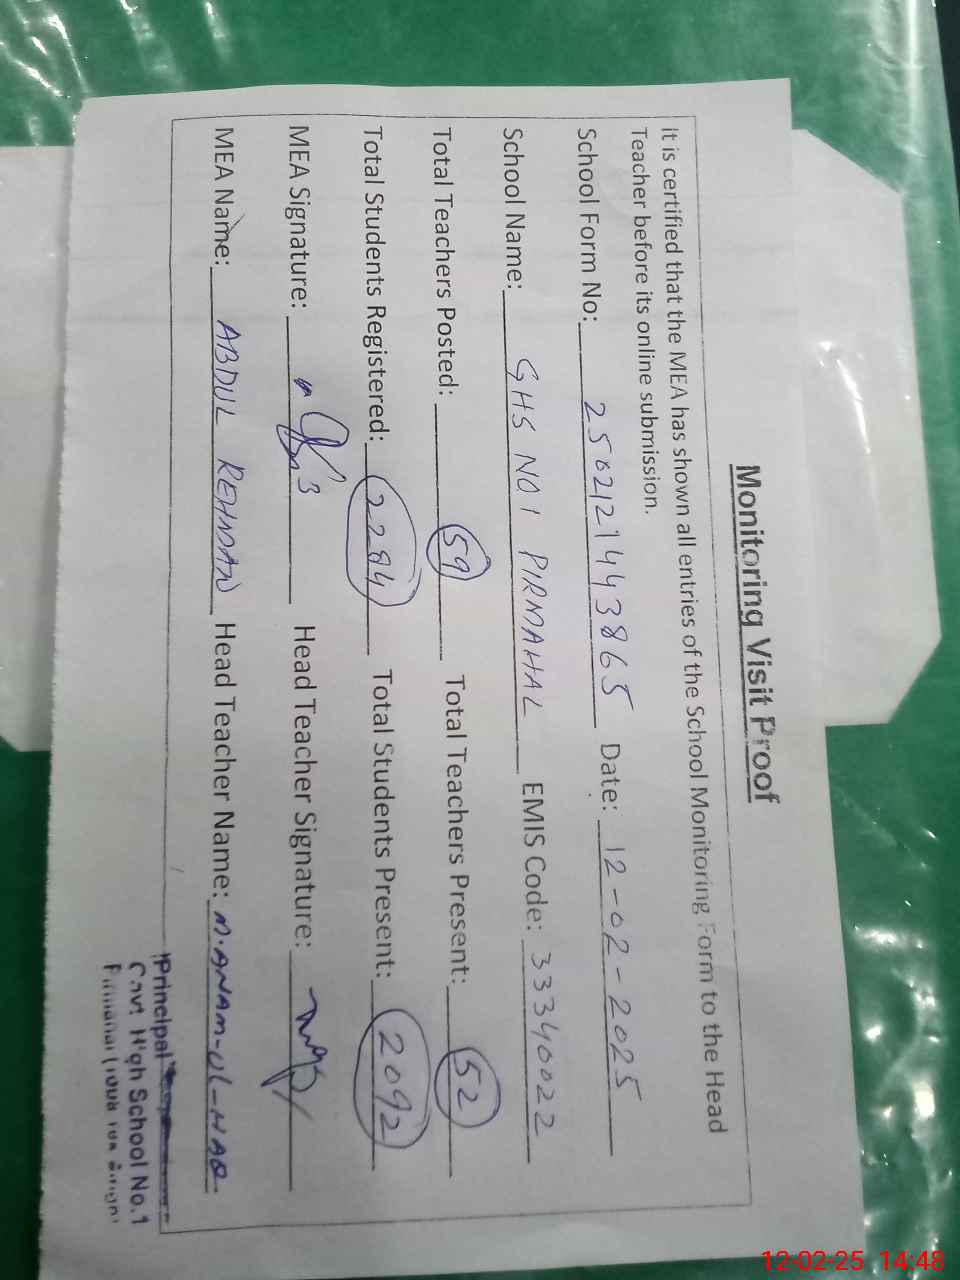 Monitoring Visit Proof
It is certified that the MEA has shown all entries of the School Monitoring Form to the Head
Teacher before its online submission.
School Form No: 250212144 3865 Date: 12-02-2025
School Name: GHS NO1 PIRMAHAL EMIS Code: 33340022
Total Teachers Posted: 59 Total Teachers Present: 52
Total Students Registered: 2284 Total Students Present: 2092
MEA Signature: Head Teacher Signature:
MEA Name: ABDUL REHMAN Head Teacher Name: M.ANAM-UL-HAQ
Principal
Govt High School No.1
12-02-25 14:48